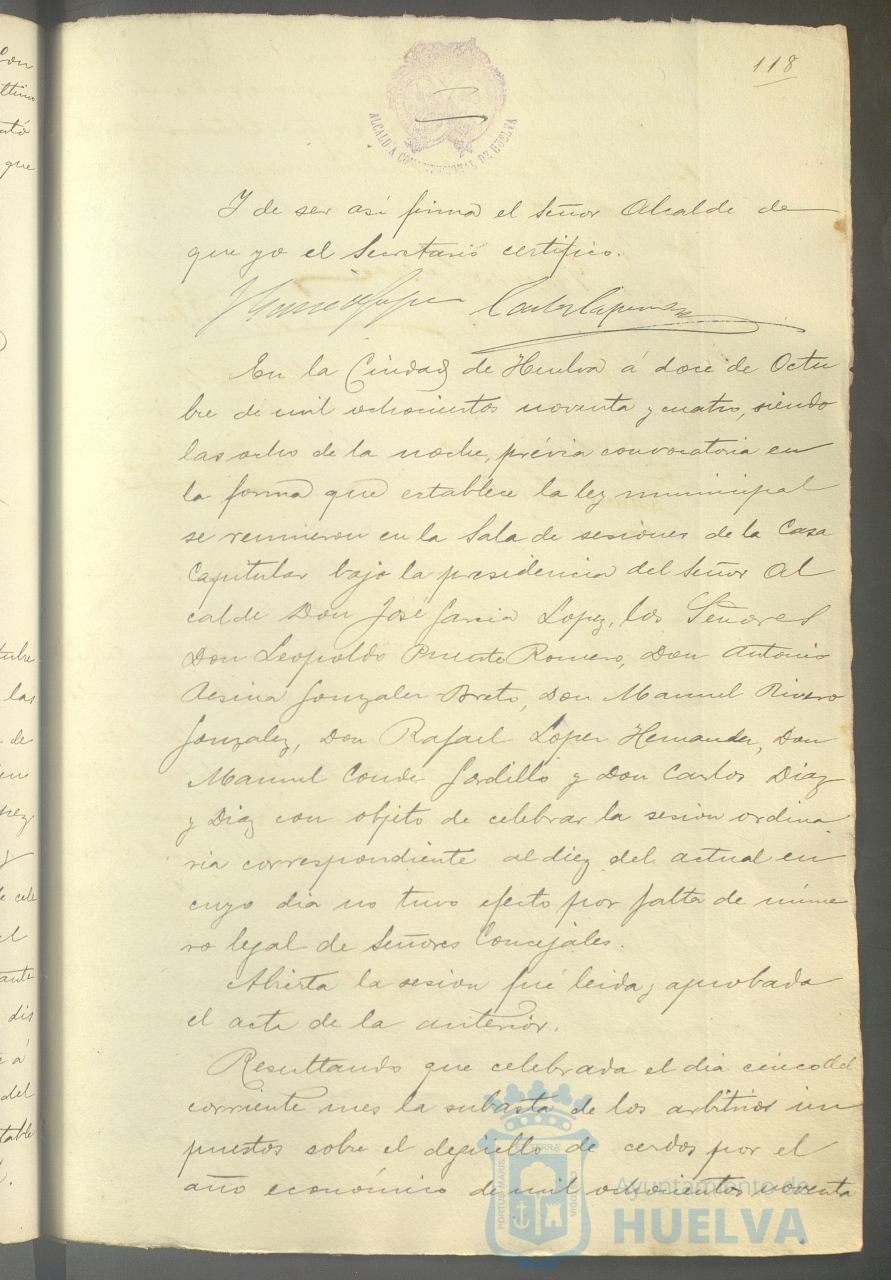 118
ALCALDÍA CONSTITUCIONAL DE HUELVA
Y de ser así firma el Señor Alcalde de
que yo el Secretario certifico.
En la Ciudad de Huelva á doce de Octu
bre de mil ochocientos noventa y cuatro, siendo
las ocho de la noche, prévia convocatoria en
la forma que establece la ley municipal
se reunieron en la Sala de sesiones de la Casa
Capitular bajo la presidencia del Señor Al
calde Don José Garcia Lopez, los Señores
Don Leopoldo Puente Romero, Don Antonio
Gonzalez Don Manuel Rivero
Gonzalez, Don Rafael Lopez Hernandez, Don
Manuel Conde Gordillo y Don Carlos Diaz
y Diaz con objeto de celebrar la sesion ordina
ria correspondiente al diez del actual en
cuyo dia no tuvo efecto por falta de núme
ro legal de Señores Concejales.
Abierta la sesion fué leida y aprobada
el acta de la anterior.
Resultando que celebrada el dia cinco del
corriente mes la subasta de los arbitrios im
puestos sobre el degüello de cerdos por el
año económico de mil ochocientos noventa
PORTUS MARIS
Ayuntamiento de
HUELVA